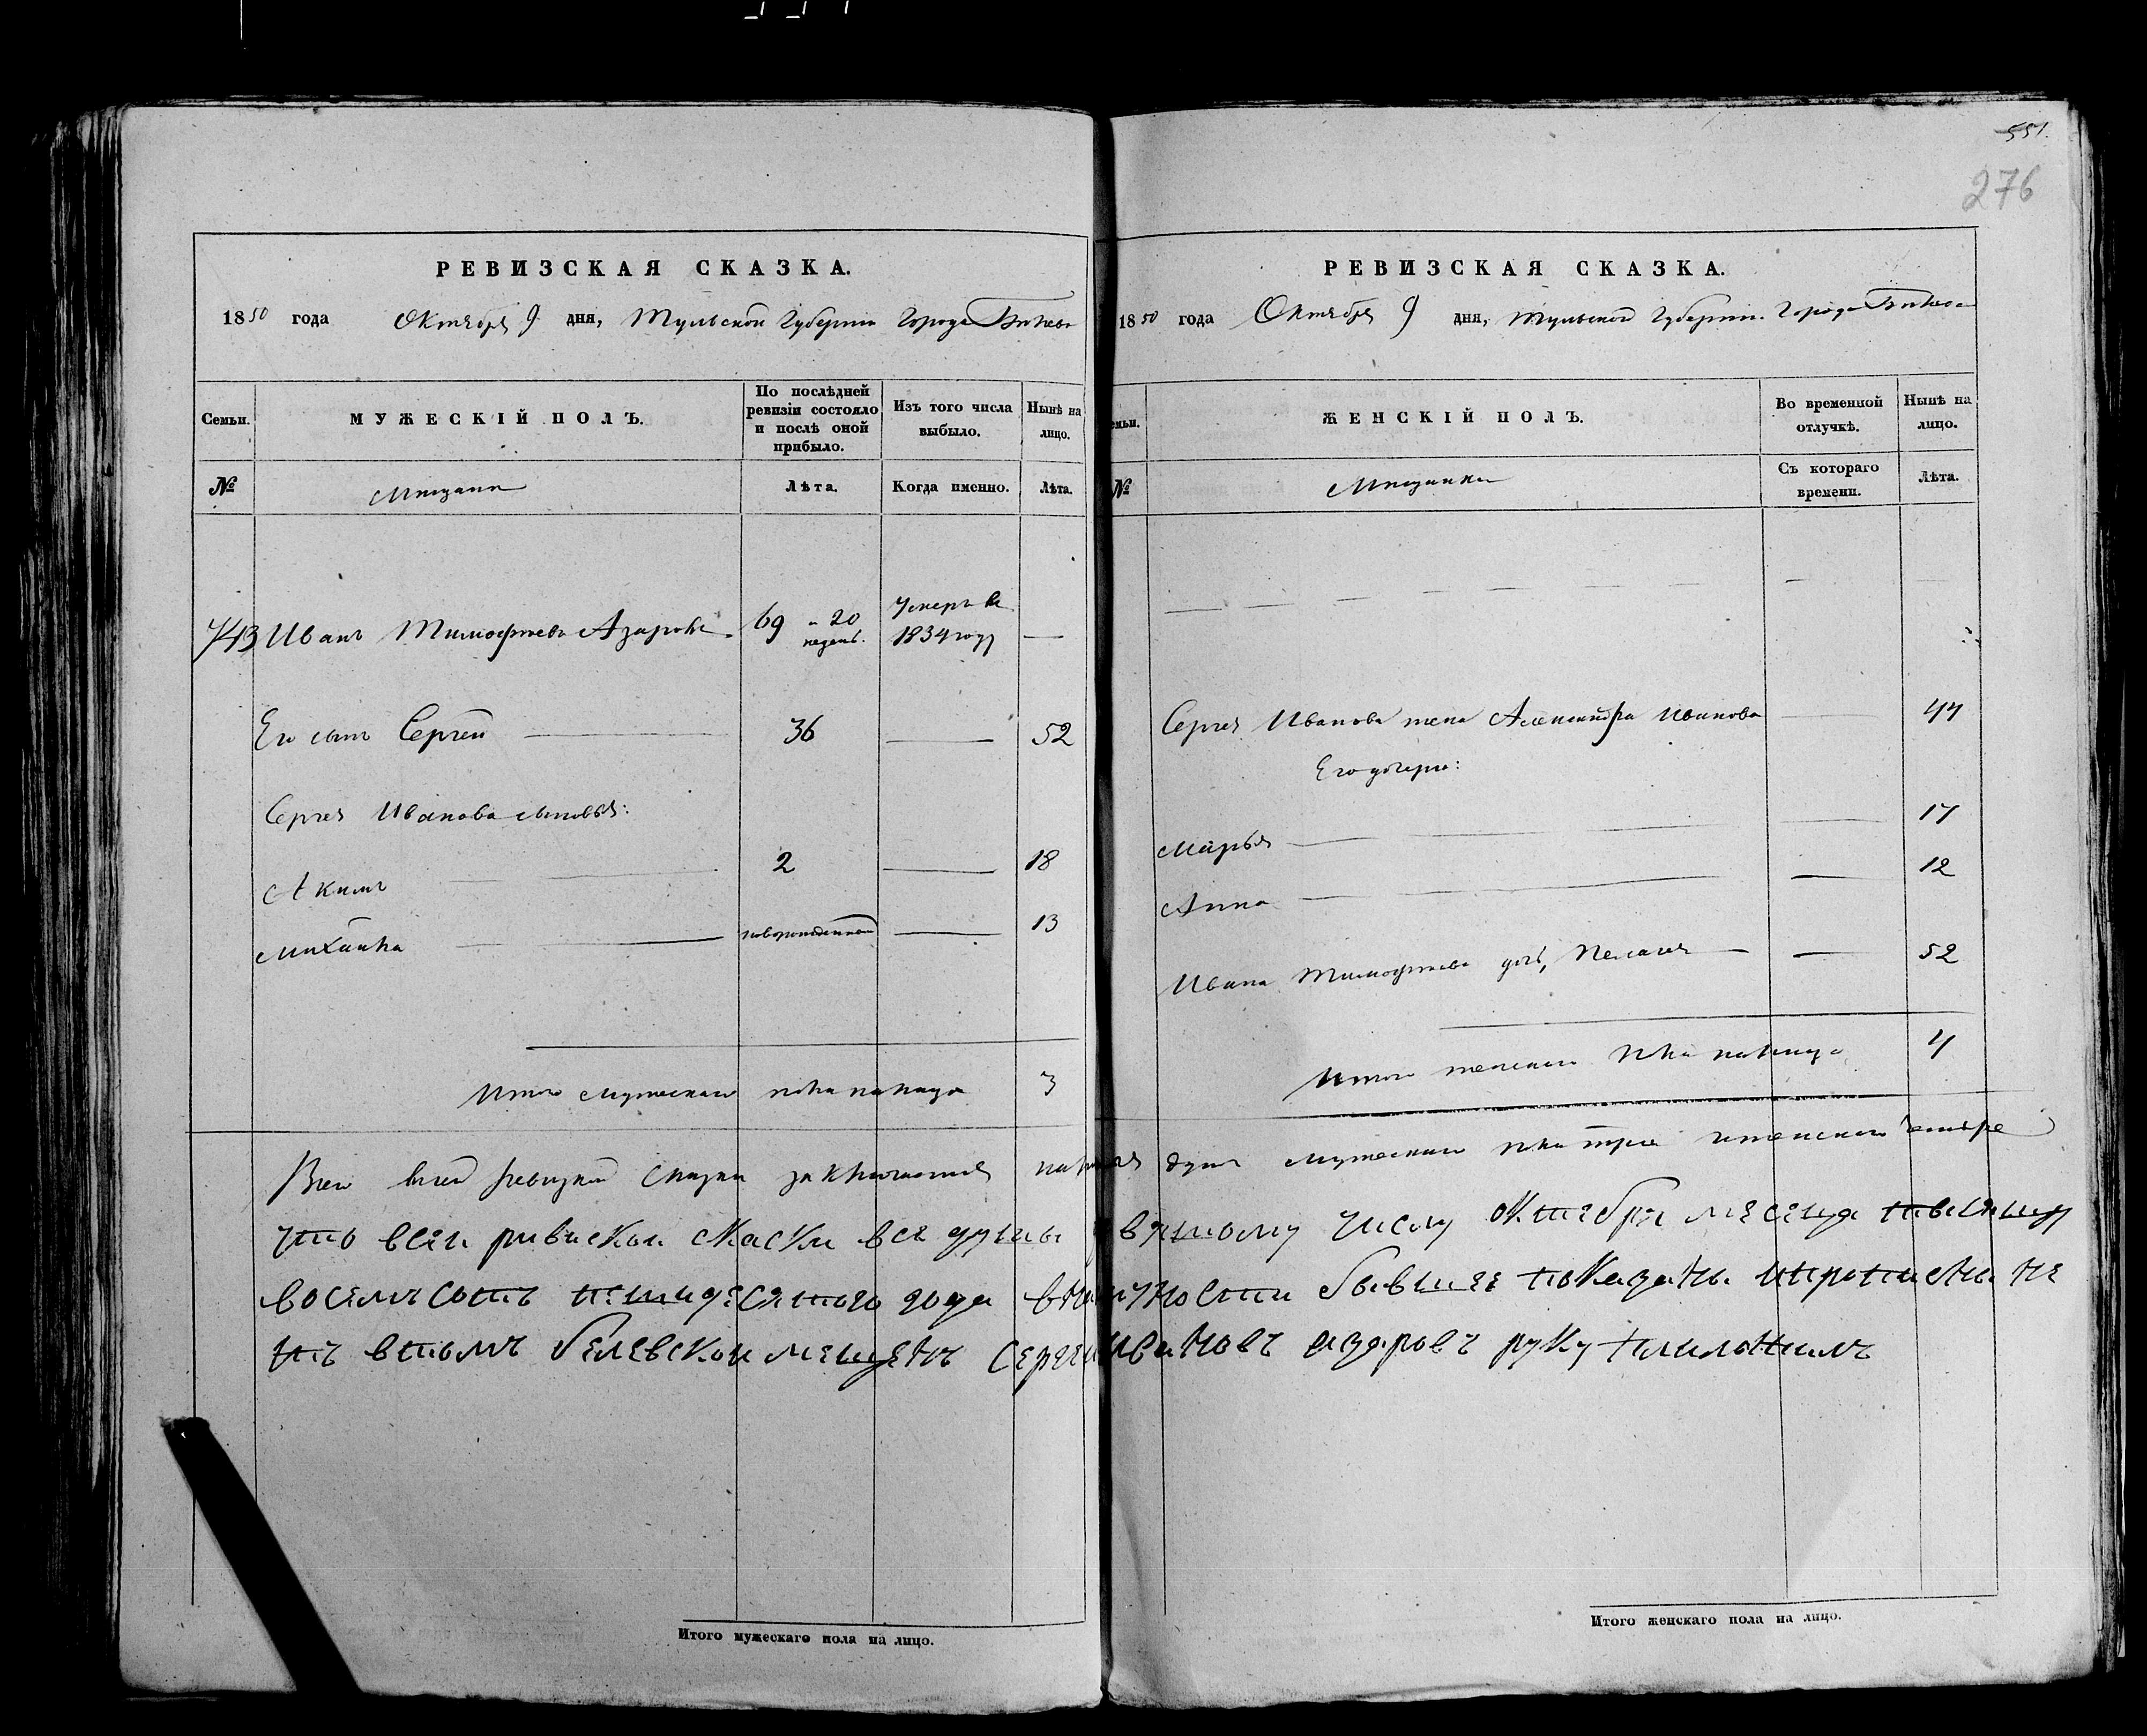 551.
276
РЕВИЗСКАЯ СКАЗКА.
1850 года Октября 9 дня, Тульской Губернии Города Белева
Семьи.
МУЖЕСКІЙ ПОЛЪ.
По послѣдней ревизіи состояло и послѣ оной прибыло.
Изъ того числа выбыло.
Нынѣ на лицо.
№
Мещане
Лѣта.
Когда именно.
Лѣта.
743 Иванъ Тимофеевъ Азаровъ 69 и 20 недель. Умеръ въ 1834 году —
Его сынъ Сергей 36 — 52
Сергея Иванова сыновья:
Акимъ 2 — 18
Михайла новорожденной — 13
Итого мужескаго пола налицо 3
РЕВИЗСКАЯ СКАЗКА.
1850 года Октября 9 дня, Тульской Губернии Города Белева
ЖЕНСКІЙ ПОЛЪ.
Во временной отлучкѣ.
Нынѣ на лицо.
№
Мещанки
Съ котораго времени.
Лѣта.
Сергея Иванова жена Александра Иванова — 44
Его дочери:
Марья — 17
Анна — 12
Ивана Тимофеева дочь, Пелагея — 52
Итого женскаго пола налицо 4
Всего в сей ревизкой сказки заключается налицо душъ мужескаго пола три и женскаго четыре
что всеи ривискои скаски все души к вышеому числу октебря месеца тысящу
восемъсотъ петидесятого года в наличности бывшее показаны и пропись
нъ втомъ белевскои мещенъ Сергеи Ивановъ азаровъ руку приложилъ
Итого мужескаго пола на лицо.
Итого женскаго пола на лицо.